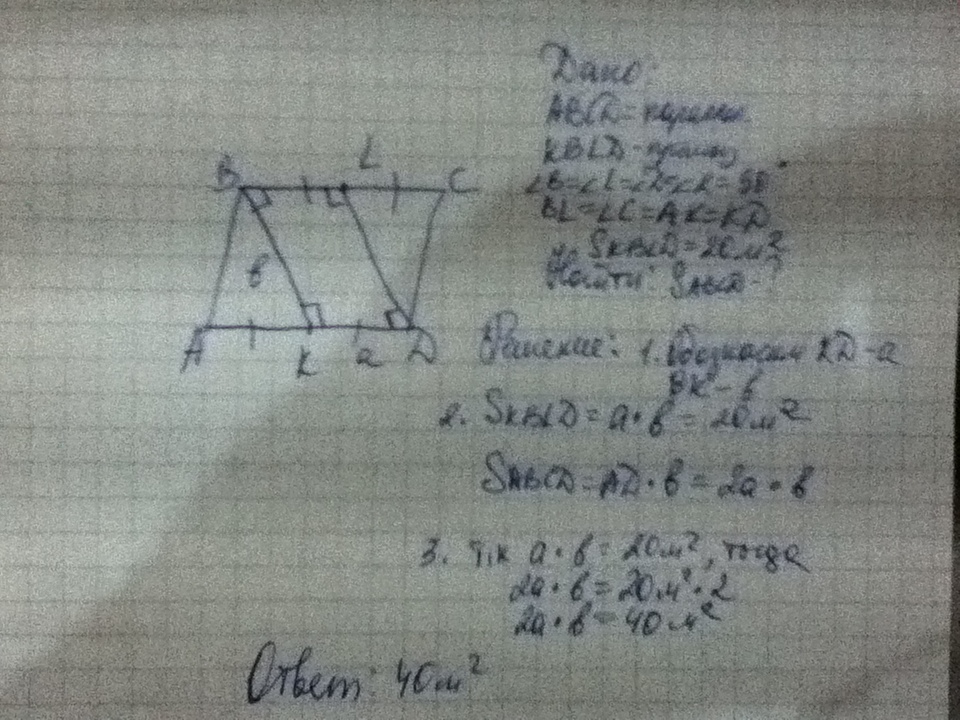 B
L
C
в
A
K
a
D
Дано:
ABCD-
KBLD-
∠B=∠L=∠D=∠K=90°
BL=LC=AK=KD
SKBLD=20м²
Найти: SABCD-?
Решение: 1. Обозначим KD-a
BK-в
2. SKBLD=a·в=20м²
SABCD=AD·в=2a·в
3. Т.к a·в=20м², тогда
2a·в=20м²·2
2a·в=40м²
Ответ: 40м²